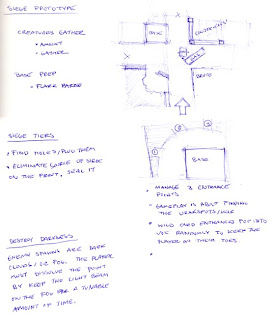 SIEGE PROTOTYPE
CREATURES GATHER
• AMOUNT
• GATHER
BASE PREP
• FLARE
BASE
X
X
SIEGE TIERS
• FIND HOLES/PLUG THEM
• ELIMINATE SOURCE OF SIEGE
ON THE FRONT, SEAL IT
1
2
3
BASE
• MANAGE 3 ENTRANCE
POINTS
• GAMEPLAY IS ABOUT FINDING
THE WEAKSPOTS/HOLE
• WILD CARD ENTRANCES
USE RANDOMLY TO KEEP THE
PLAYER ON THEIR TOES
DESTROY DARKNESS
ENEMY SPAWNS ARE DARK
CLOUDS/OR FOG. THE PLAYER
MUST DISSOLVE THE POINT
BY KEEP THE LIGHT BEAM
ON THE FOG FOR A TUNABLE
AMOUNT OF TIME.